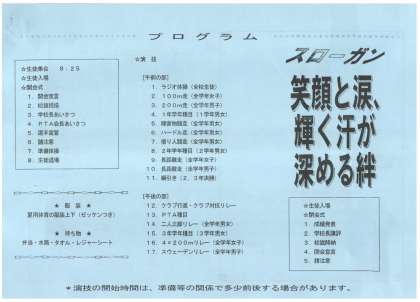 プログラム
☆生徒集合 8:25
☆生徒入場
☆開会式
1. 開会宣言
2. 校旗掲揚
3. 学校長あいさつ
4. PTA会長あいさつ
5. 選手宣誓
6. 諸注意
7. 準備体操
8. 生徒退場
★ 服装 ★
夏用体育の服装上下(ゼッケンつき)
★ 持ち物 ★
弁当・水筒・タオル・レジャーシート
☆演技
[午前の部]
1. ラジオ体操(全校生徒)
2. 100m走(全学年女子)
3. 200m走(全学年男子)
4. 1年学年種目(1学年男女)
5. 障害物競走(全学年男女)
6. ハードル走(全学年男女)
7. 借り人競走(全学年男女)
8. 2年学年種目(2学年男女)
9. 長距離走(全学年女子)
10. 長距離走(全学年男子)
11. 綱引き(2、3年決勝)
[午後の部]
12. クラブ行進・クラブ対抗リレー
13. PTA種目
14. 二人三脚リレー(全学年男女)
15. 3年学年種目(3学年男女)
16. 4×200mリレー(全学年女子)
17. スウェーデンリレー(全学年男子)
スローガン
笑顔と涙、
輝く汗が
深める絆
☆生徒入場
☆閉会式
1. 成績発表
2. 学校長講評
3. 校旗降納
4. 閉会宣言
5. 諸注意
*演技の開始時間は、準備等の関係で多少前後する場合があります。